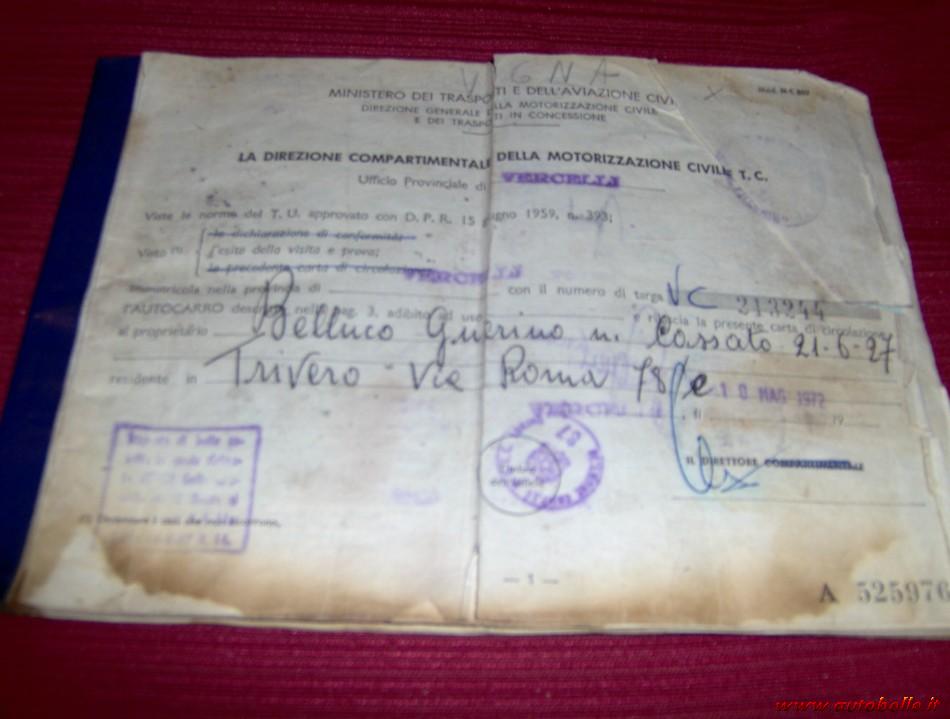 VIGNA
MINISTERO DEI TRASPORTI E DELL'AVIAZIONE CIVI
Mod. M C 807
DIREZIONE GENERALE DELLA MOTORIZZAZIONE CIVILE
E DEI TRASPORTI IN CONCESSIONE
LA DIREZIONE COMPARTIMENTALE DELLA MOTORIZZAZIONE CIVILE T. C.
Ufficio Provinciale di VERCELLI
Viste le norme del T. U. approvato con D. P. R. 15 giugno 1959, n. 393;
la dichiarazione di conformità;
Visto (1) l'esito della visita e prova;
la precedente carta di circolazione;
immatricola nella provincia di VERCELLI con il numero di targa VC 213244
l'AUTOCARRO descritto nella pag. 3, adibito ad uso e rilascia la presente carta di circolazione
al proprietario Belluco Guerino n. Cossato 21-6-27
residente in Trivero Via Roma 78/e
VERCELLI, li 10 MAG 1972 19
IL DIRETTORE COMPARTIMENTALE
Timbro
(1) Depennare i casi che non ricorrono.
— 1 —
A 525976
www.autobolle.it